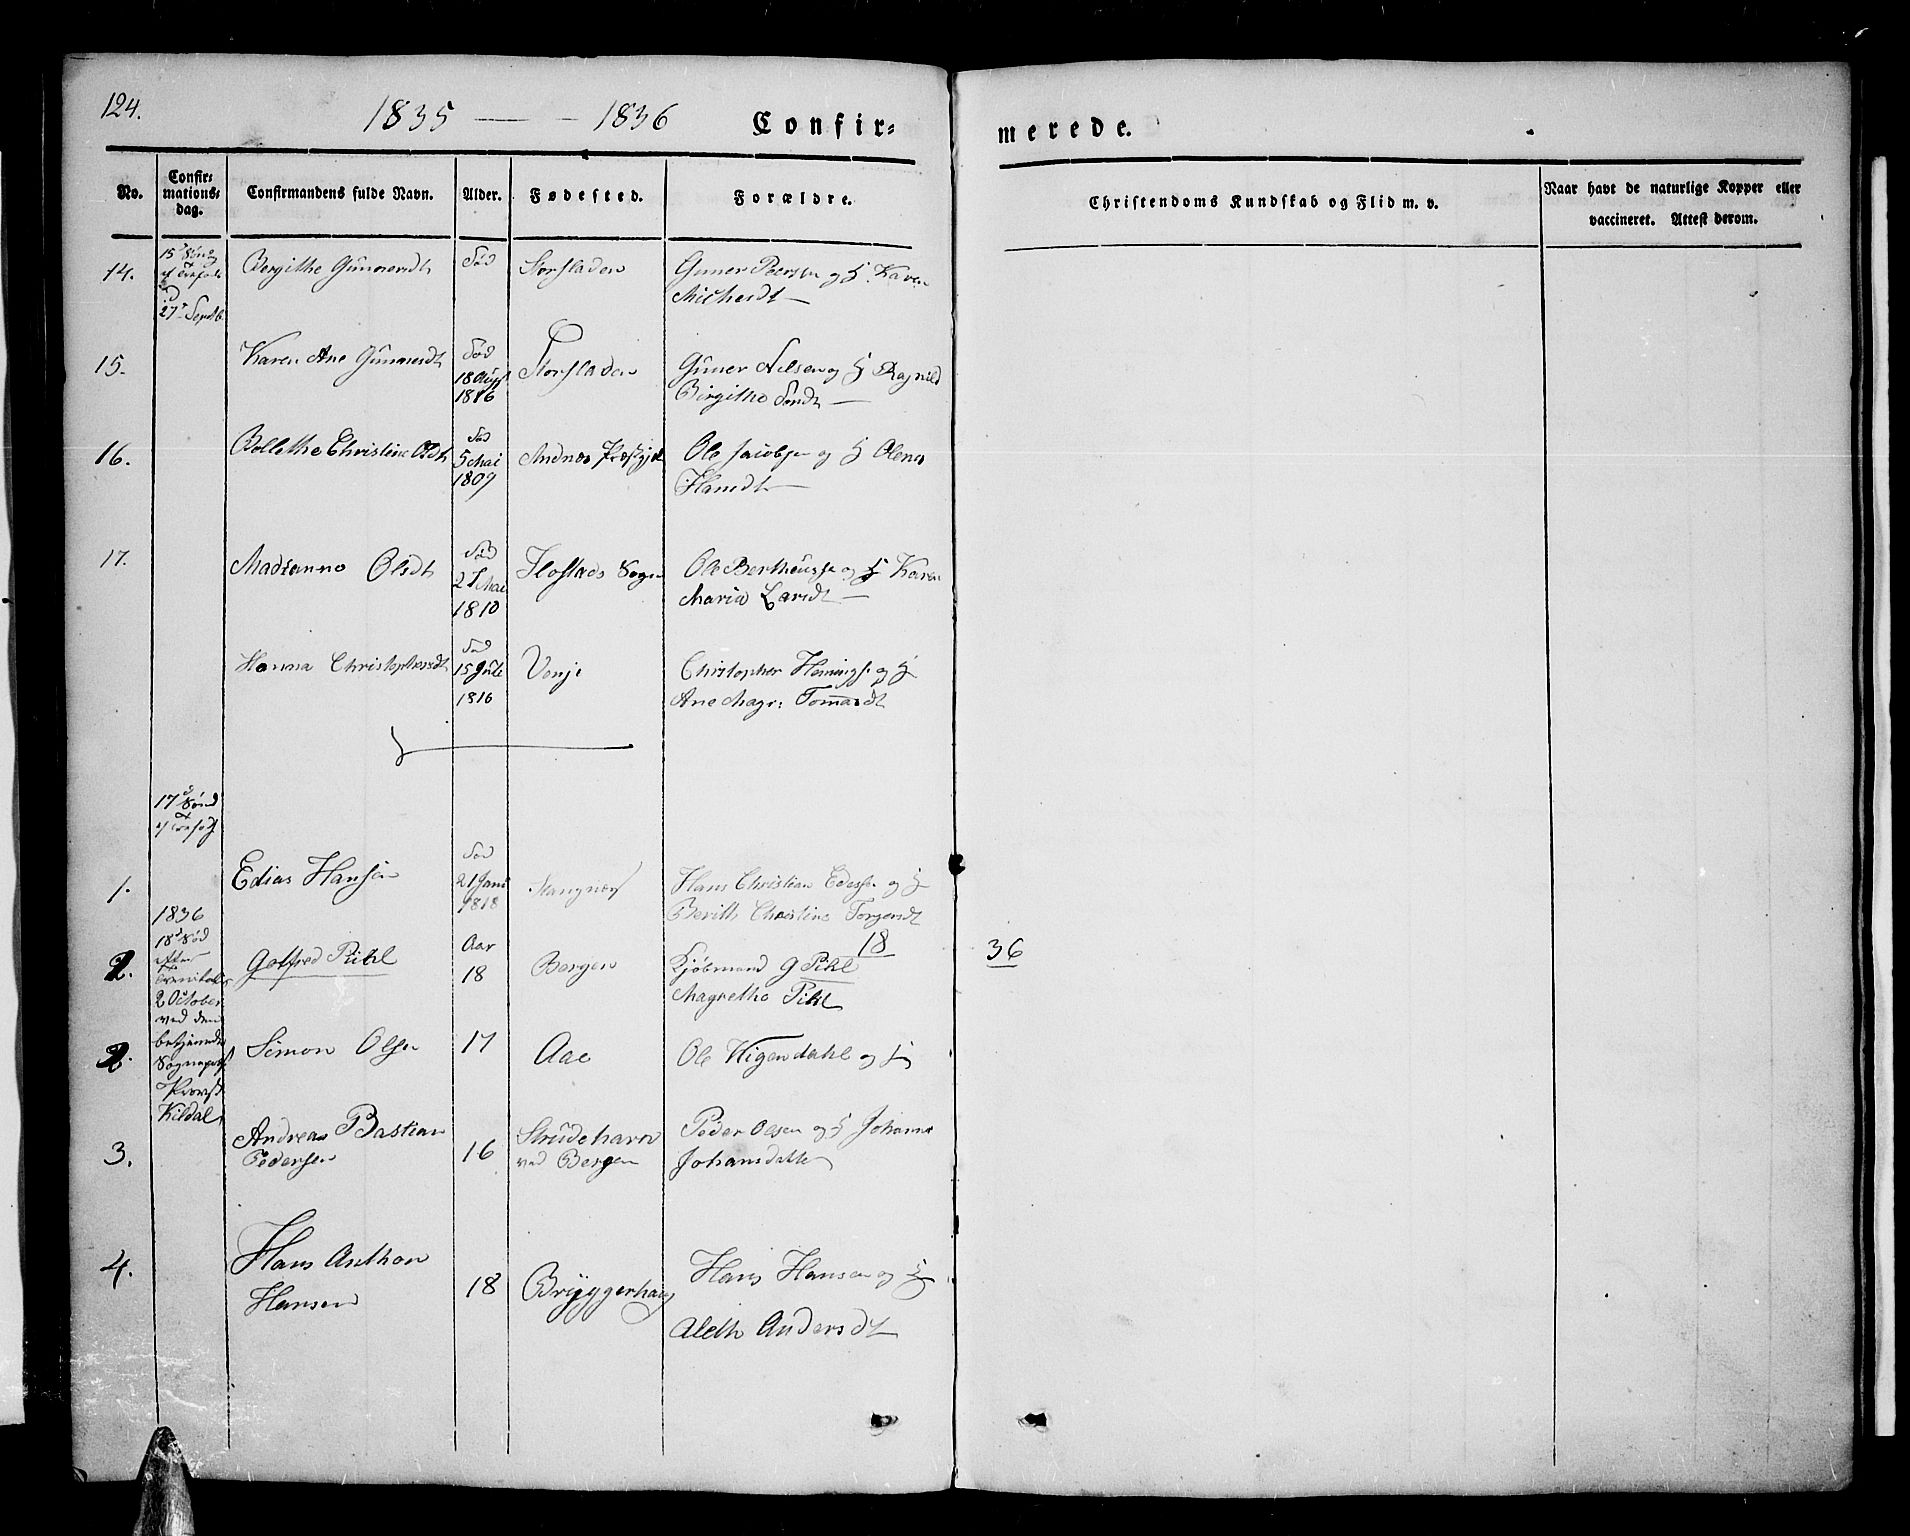 124.
1835 — - 1836 Confir=
merede.
No.
Confir=
mations=
dag.
Confirmandens fulde Navn.
Alder.
Fødested.
Forældre.
Christendoms Kundskab og Flid m. v.
Naar havt de naturlige Kopper eller
vaccineret. Attest derom.
14.
27 Septb
Bergithe Gunnersdt
Fød
Storsladen
Guner Peersen og H. Karen
Michersdt
15.
Karen Ane Gunnersdt
Fød
18 Augst
1816
Storsladen
Guner Nilsen og H Ragnild
Birgithe
16.
Bollethe Christine Olsdt
Fød
5 Mai
1809
Andnæs Præstgjd
Ole Jacobsen og H Olena
Hansdt
17.
Madsanna Olsdt
Fød
Mai
1810
Sogn
Ole Bertheusse og H Karen
Maria Larsdt
Hanna Christophersdt
Fød
15 Jule
1816
Christopher Henningse og H
Ane Magr: Tomasdt
17
1.
Edias Hansen
Fød
21 Jani
1818
Stangnæs
Hans Christian Edesse og H
Berith Christine Torgersdt
1836
18
18 36
2.
2 October
ved den
Sognepræst
Provst
Kildal
Gotfred Pihl
Aar
18
Bergen
Kjøbmand G Pihl
Magrethe Pihl
2.
Simon Olsen
17
Aae
Ole Wigendahl og H
3.
Andreas Bastian
Pedersen
16
Strudehavn
ved Bergen
Peder Olsen og H Johanna
Johansdatter
4.
Hans Anthon
Hansen
18
Bryggerhaug
Hans Hansen og H
Aleth Andersdt